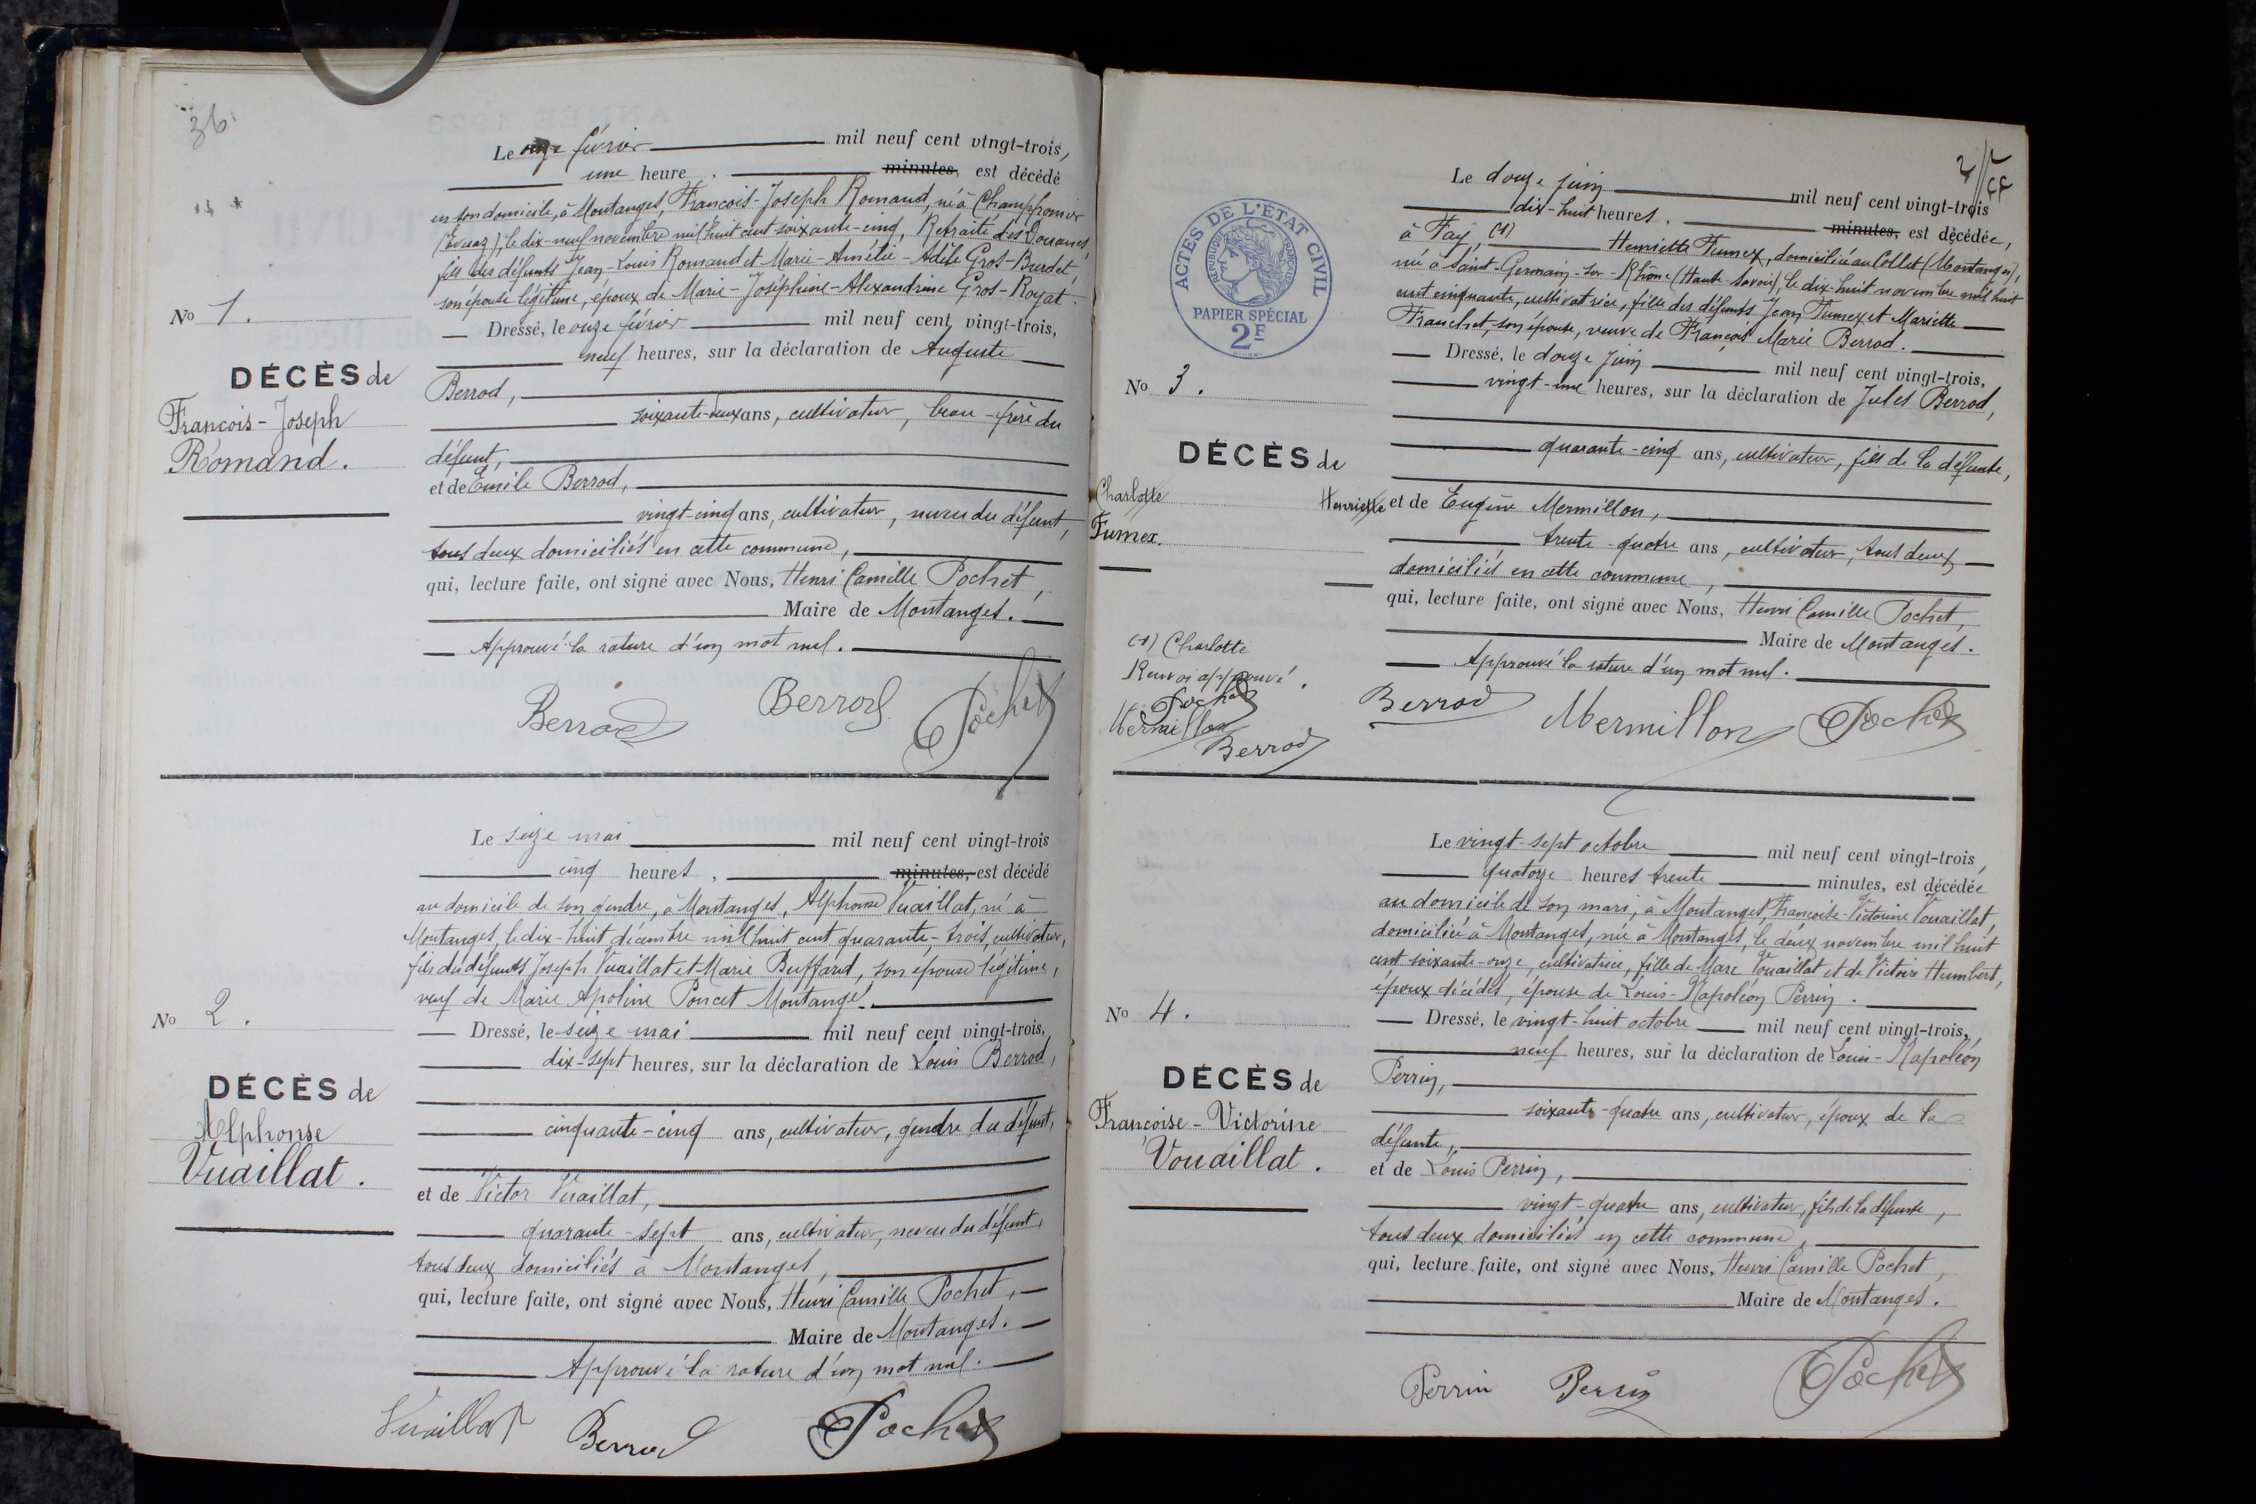 36.
Le onze février mil neuf cent vingt-trois,
une heure . minutes, est décédé
en son domicile, à Montanges, François-Joseph Romand, né à Champfromier
(Evuaz), le dix-neuf novembre mil huit cent soixante-cinq, Retraité des Douanes,
fils des défunts Jean-Louis Romand et Marie-Amélie-Adèle Gros-Burdet,
son épouse légitime, époux de Marie-Joséphine-Alexandrine Gros-Royat.
No 1.
Dressé, le onze février mil neuf cent vingt-trois,
neuf heures, sur la déclaration de Auguste
DÉCÈS de
François-Joseph
Romand.
Berrod,
soixante-deux ans, cultivateur, beau-frère du
défunt,
et de Emile Berrod,
vingt-cinq ans, cultivateur, neveu du défunt,
tous deux domiciliés en cette commune,
qui, lecture faite, ont signé avec Nous, Henri Camille Pochet,
Maire de Montanges.
Approuvé la rature d'un mot nul.
Berrod Berrod Pochet
Le seize mai mil neuf cent vingt-trois
cinq heures, minutes, est décédé
au domicile de son gendre, à Montanges, Alphonse Vuaillat, né à
Montanges, le dix-huit décembre mil huit cent quarante-trois, cultivateur,
fils des défunts Joseph Vuaillat et Marie Buffard, son épouse légitime,
veuf de Marie Apoline Poncet Montange.
No 2.
Dressé, le seize mai mil neuf cent vingt-trois,
dix-sept heures, sur la déclaration de Louis Berrod,
DÉCÈS de
Alphonse
Vuaillat.
cinquante-cinq ans, cultivateur, gendre du défunt,
et de Victor Vuaillat,
quarante-sept ans, cultivateur, neveu du défunt,
tous deux domiciliés à Montanges,
qui, lecture faite, ont signé avec Nous, Henri Camille Pochet,
Maire de Montanges.
Approuvé la rature d'un mot nul.
Vuaillat Berrod Pochet
ACTES DE L'ÉTAT CIVIL
RÉPUBLIQUE FRANÇAISE
PAPIER SPÉCIAL
2F
Le douze juin mil neuf cent vingt-trois
dix-huit heures. minutes, est décédée,
à Fay, (1) Henriette Fumex, domiciliée au Collet (Montanges),
née à Saint-Germain-sur-Rhône (Haute-Savoie), le dix-huit novembre mil huit
cent cinquante, cultivatrice, fille des défunts Jean Fumex et Mariette
Franchet, son épouse, veuve de François Marie Berrod.
No 3.
Dressé, le douze juin mil neuf cent vingt-trois,
vingt-une heures, sur la déclaration de Jules Berrod,
DÉCÈS de
Charlotte Henriette
Fumex.
quarante-cinq ans, cultivateur, fils de la défunte,
et de Eugène Mermillon,
trente-quatre ans, cultivateur, tous deux
domiciliés en cette commune,
qui, lecture faite, ont signé avec Nous, Henri Camille Pochet,
Maire de Montanges.
Approuvé la rature d'un mot nul.
(1) Charlotte
Renvoi approuvé.
Pochet
Mermillon
Berrod
Berrod Mermillon Pochet
Le vingt-sept octobre mil neuf cent vingt-trois,
quatorze heures trente minutes, est décédée
au domicile de son mari, à Montanges, Françoise-Victorine Vouaillat,
domiciliée à Montanges, née à Montanges, le deux novembre mil huit
cent soixante-onze, cultivatrice, fille de Marc Vouaillat et de Victoire Humbert,
époux décédés, épouse de Louis-Napoléon Perrin.
No 4.
Dressé, le vingt-huit octobre mil neuf cent vingt-trois,
neuf heures, sur la déclaration de Louis-Napoléon
DÉCÈS de
Françoise-Victorine
Vouaillat.
Perrin,
soixante-quatre ans, cultivateur, époux de la
défunte,
et de Louis Perrin,
vingt-quatre ans, cultivateur, fils de la défunte,
tous deux domiciliés en cette commune,
qui, lecture faite, ont signé avec Nous, Henri Camille Pochet,
Maire de Montanges.
Perrin Perrin Pochet